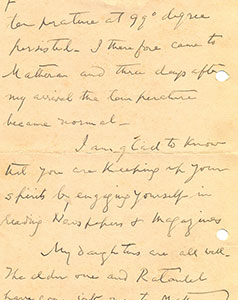 temperature at 99° degree
persisted - I therefore came to
Matheran and three days after
my arrival the temperature
became normal -
I am glad to know
that you are keeping up your
spirits by engaging yourself in
reading Newspapers & Magazines
My daughters are all well -
The elder one and Ratanbai
have